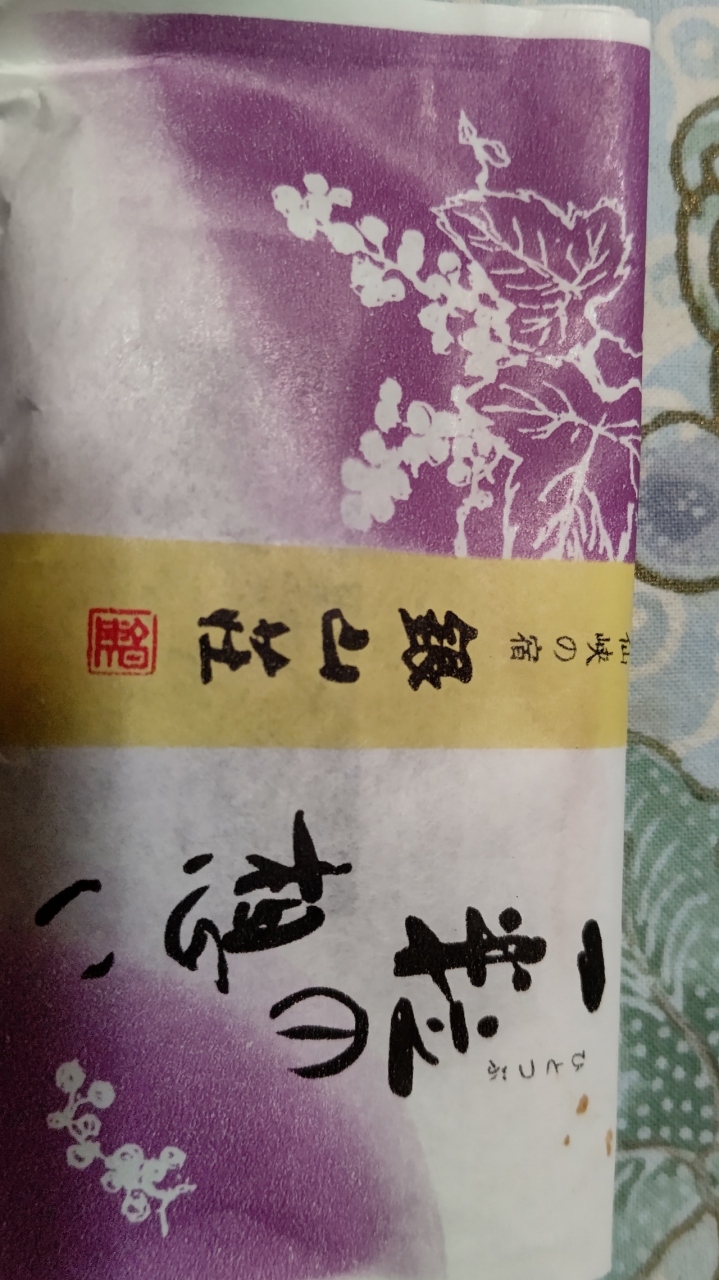 一粒の想い
ひとつぶ
仙峡の宿
銀山荘